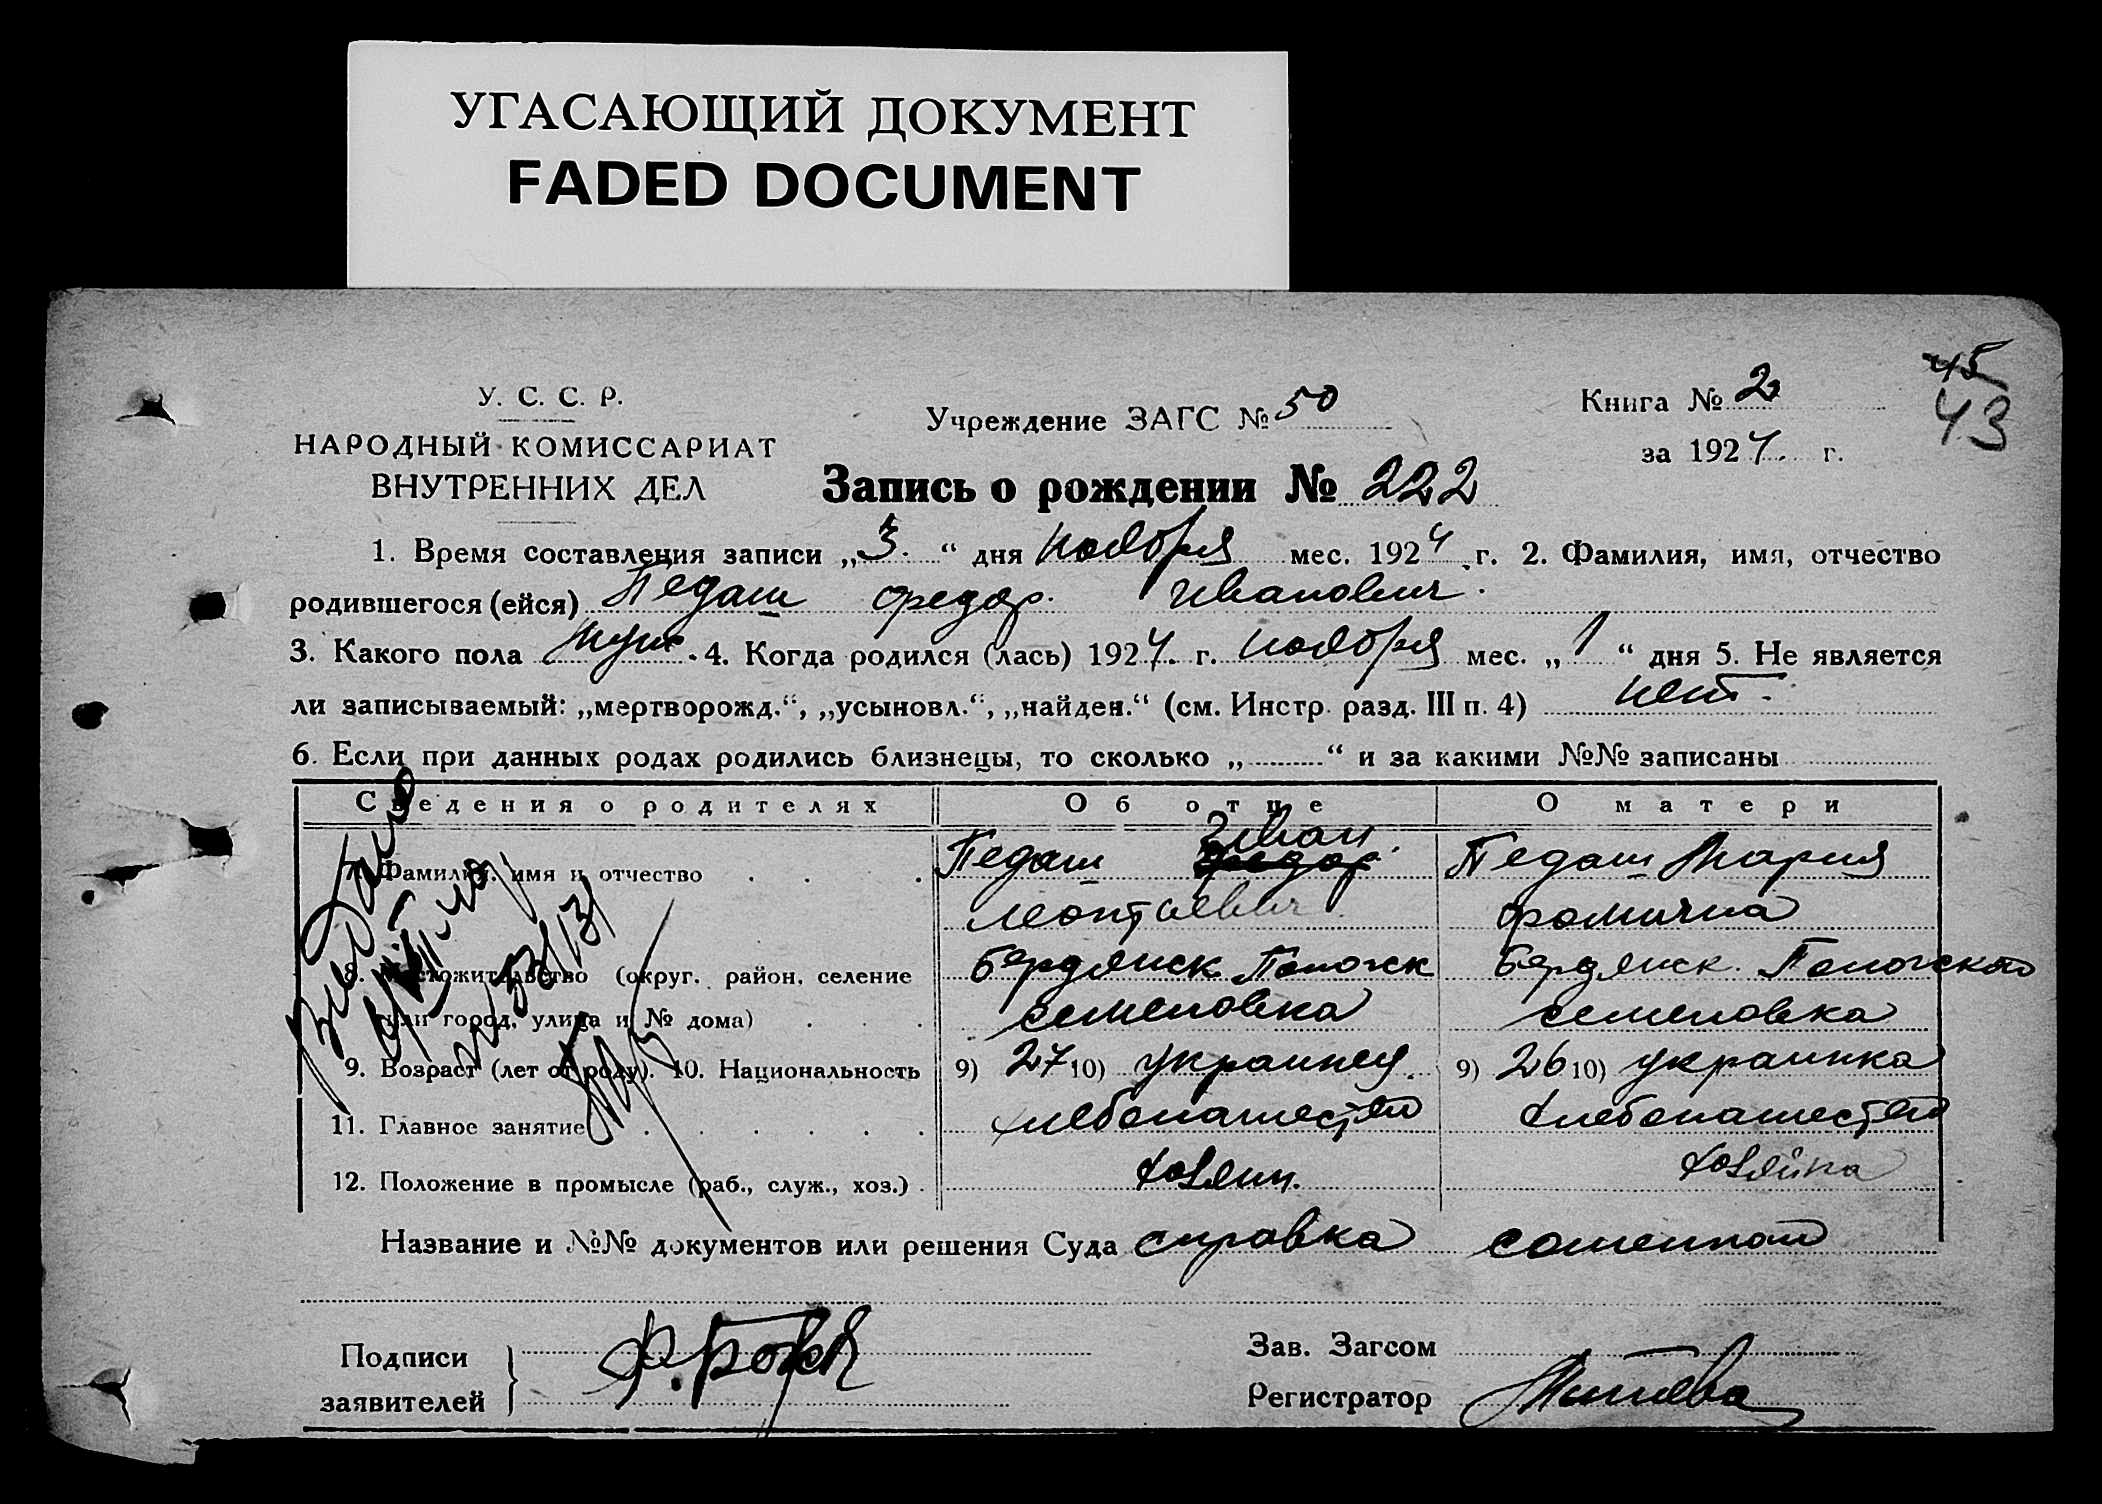 УГАСАЮЩИЙ ДОКУМЕНТ
FADED DOCUMENT
У. С. С. Р.
НАРОДНЫЙ КОМИССАРИАТ
ВНУТРЕННИХ ДЕЛ
Учреждение ЗАГС № 50
Книга № 2
за 1924 г.
45
43
Запись о рождении № 222
1. Время составления записи „3.“ дня ноября мес. 1924 г. 2. Фамилия, имя, отчество
родившегося (ейся) Педаш Федор. Иванович.
3. Какого пола муж. 4. Когда родился (лась) 1924. г. ноября мес. „1“ дня 5. Не является
ли записываемый: „мертворожд.“, „усыновл.“, „найден.“ (см. Инстр. разд. III п. 4) нет.
6. Если при данных родах родились близнецы, то сколько „ “ и за какими №№ записаны
Сведения о родителях Об отце О матери
7. Фамилия, имя и отчество Педаш Федор Иван. Педаш Мария
Леонтьевич Фомична
8. Местожительство (округ, район, селение Бердянск Пологск Бердянск. Пологского
или город, улица и № дома) Семеновка Семеновка
9. Возраст (лет от роду). 10. Национальность 9) 27 10) украинец. 9) 26 10) украинка
11. Главное занятие хлебопашество хлебопашество
12. Положение в промысле (раб., служ., хоз.) хозяин. хозяйка
Название и №№ документов или решения Суда справка
Подписи
заявителей
Зав. Загсом
Регистратор